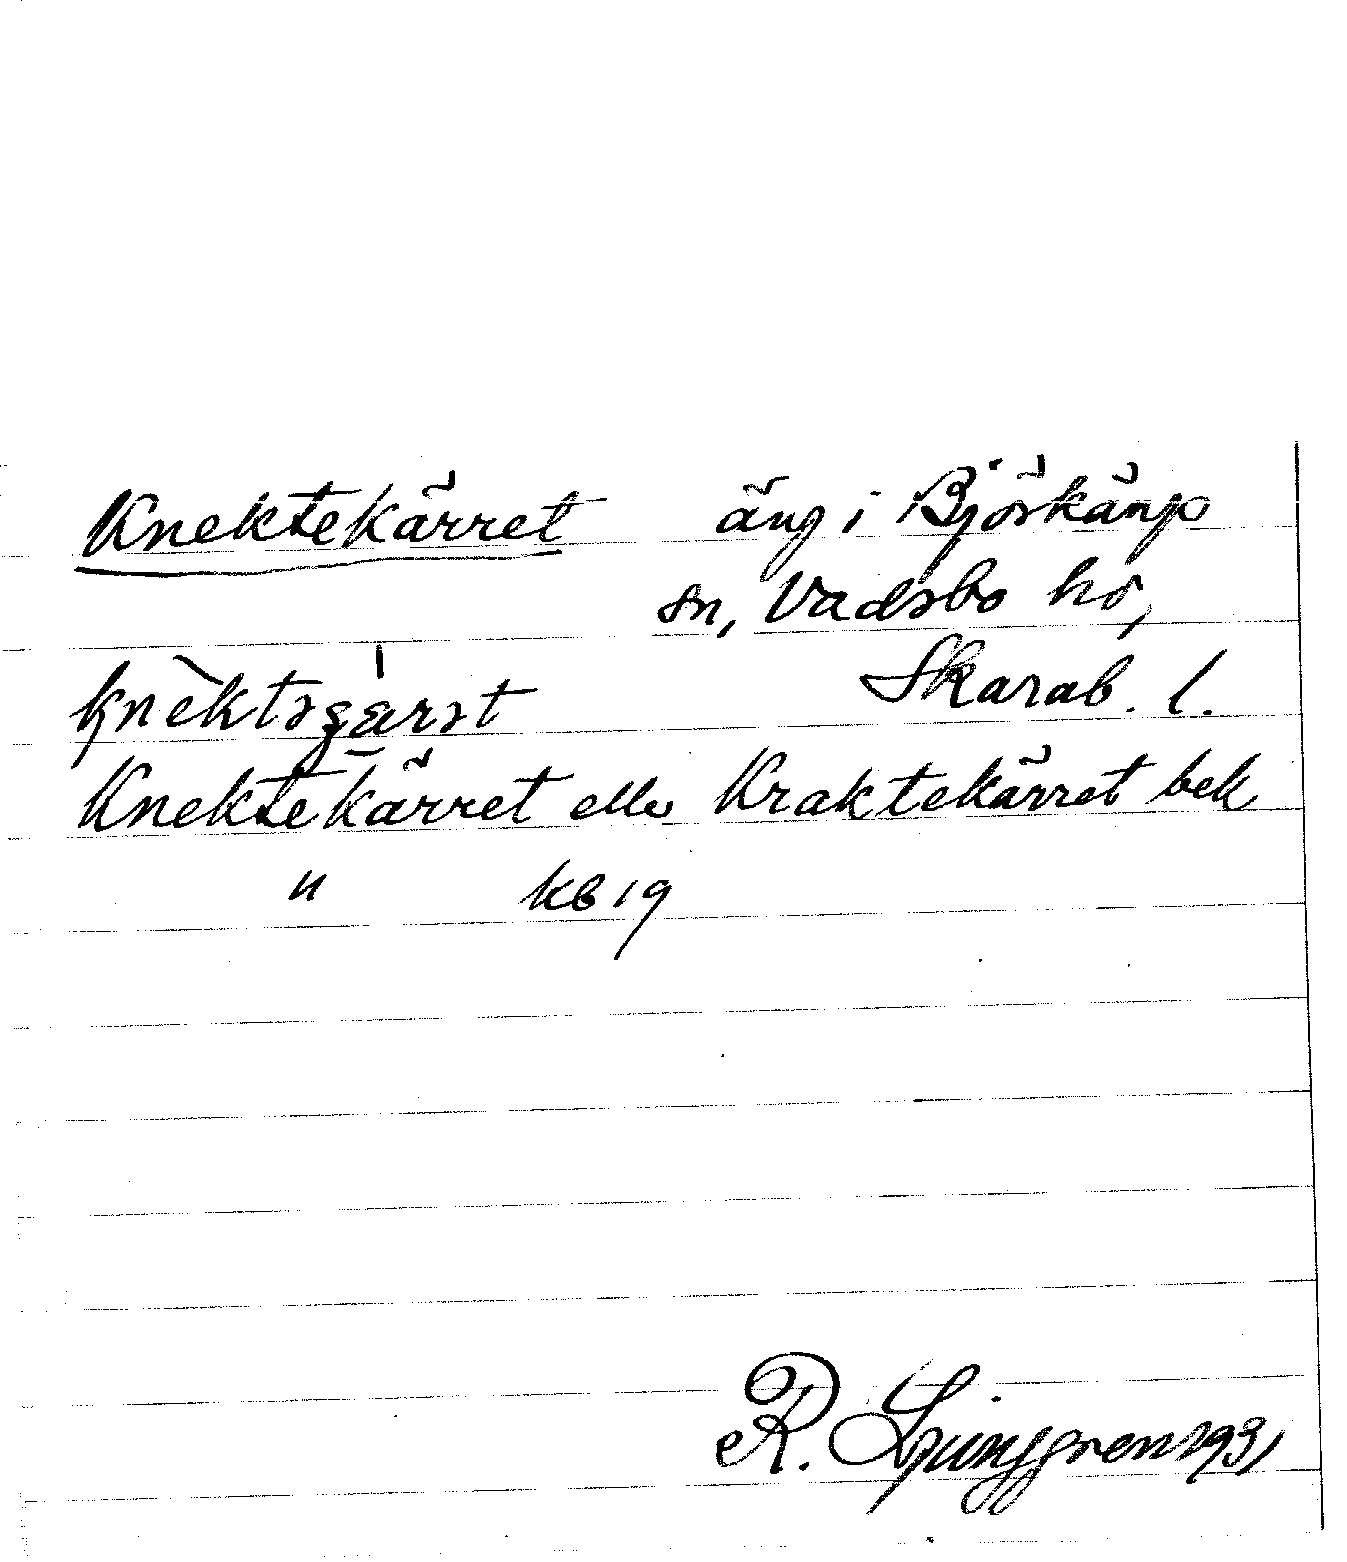 Knektekärret äng i Björkängs
sn, Vadsbo hd,
Skarab. l.
Knektekärret eller Kraktekärret bek
" KB 19
R. Ljunggren 1931